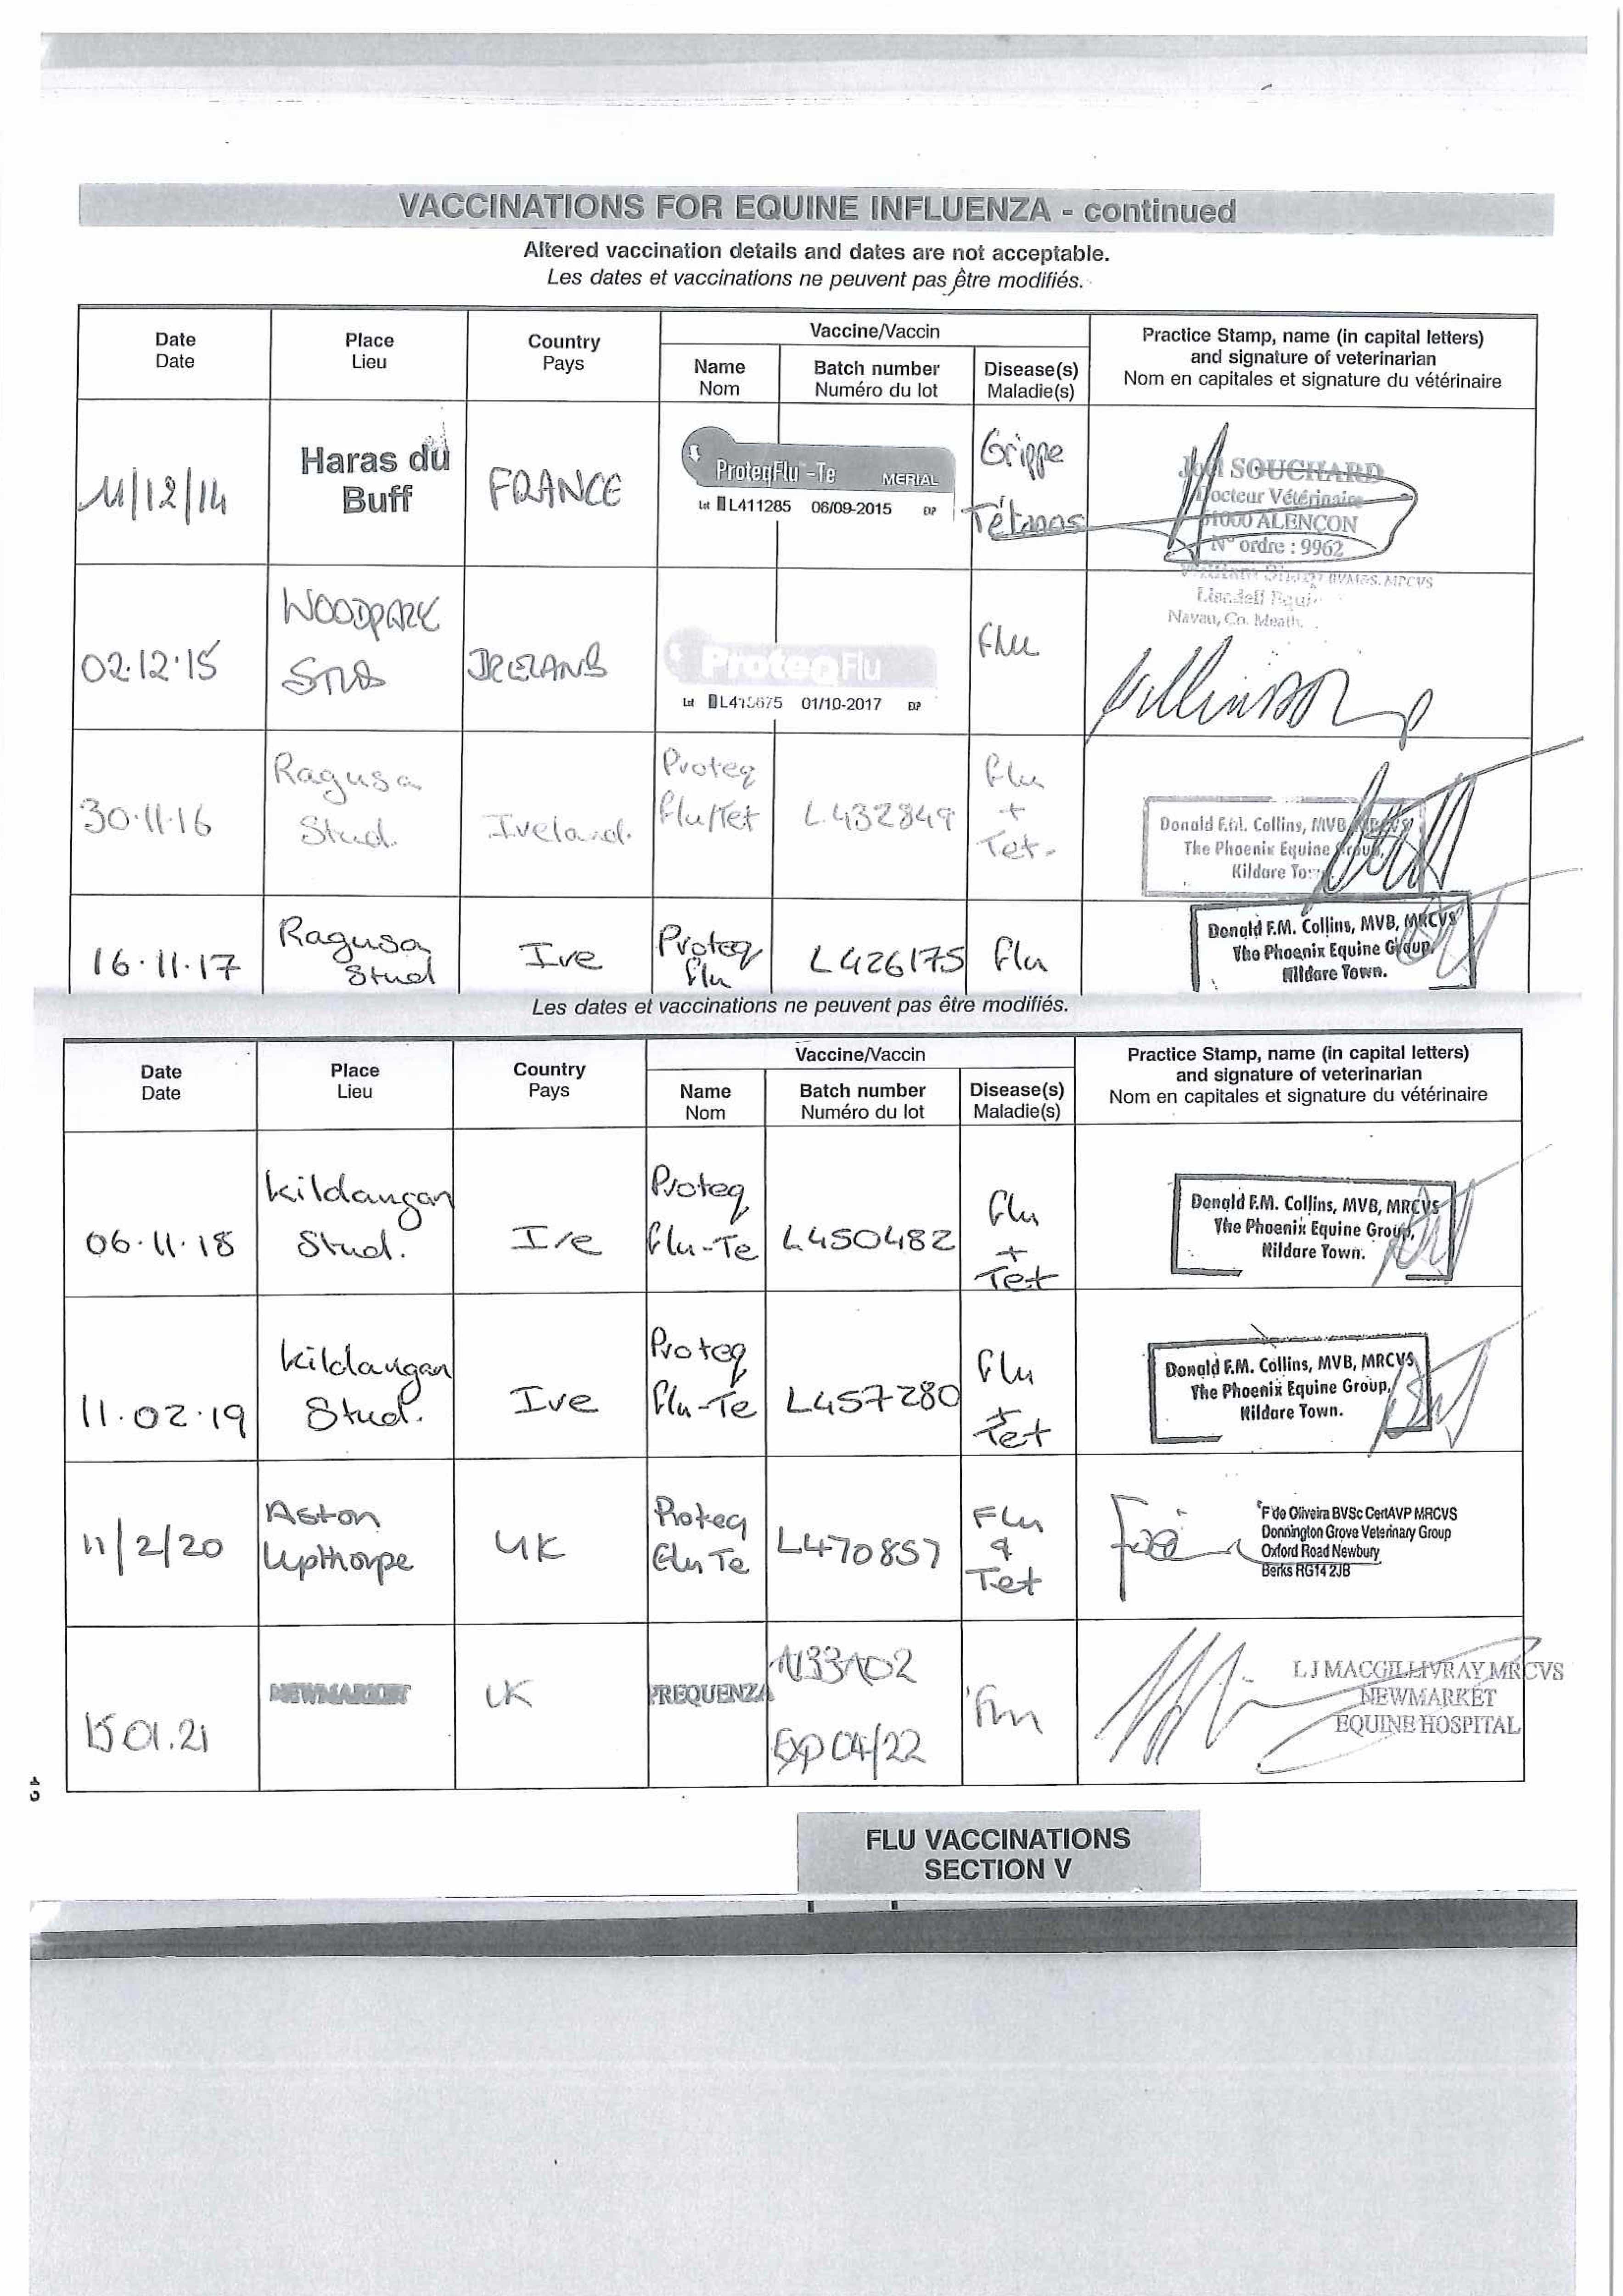 VACCINATIONS FOR EQUINE INFLUENZA - continued
Altered vaccination details and dates are not acceptable.
Les dates et vaccinations ne peuvent pas être modifiés.
Date
Date
Place
Lieu
Country
Pays
Vaccine/Vaccin
Name
Nom
Batch number
Numéro du lot
Disease(s)
Maladie(s)
Practice Stamp, name (in capital letters)
and signature of veterinarian
Nom en capitales et signature du vétérinaire
11/12/14
Haras du
Buff
FRANCE
ProteqFlu-Te MERIAL
Lot L411285 06/09-2015 EXP
Grippe
Tétanos
SOUCHARD
Docteur Vétérinaire
61000 ALENÇON
N° ordre : 9962
02.12.15
WOODPARK
STUD
IRELAND
ProteqFlu
Lot 01/10-2017 EXP
Flu
Navan, Co. Meath.
30.11.16
Ragusa
Stud.
Ireland.
Proteq
Flu/Tet
L432849
Flu
+
Tet.
Donald F.M. Collins, MVB, MRCVS
The Phoenix Equine Group,
Kildare Town.
16.11.17
Ragusa
Stud
Ire
Proteq
Flu
L426175
Flu
Donald F.M. Collins, MVB, MRCVS
The Phoenix Equine Group,
Kildare Town.
Les dates et vaccinations ne peuvent pas être modifiés.
Date
Date
Place
Lieu
Country
Pays
Vaccine/Vaccin
Name
Nom
Batch number
Numéro du lot
Disease(s)
Maladie(s)
Practice Stamp, name (in capital letters)
and signature of veterinarian
Nom en capitales et signature du vétérinaire
06.11.18
Kildangan
Stud.
Ire
Proteq
Flu-Te
L450482
Flu
+
Tet
Donald F.M. Collins, MVB, MRCVS
The Phoenix Equine Group,
Kildare Town.
11.02.19
Kildangan
Stud.
Ire
Proteq
Flu-Te
L457280
Flu
+
Tet
Donald F.M. Collins, MVB, MRCVS
The Phoenix Equine Group,
Kildare Town.
11/2/20
Aston
Upthorpe
UK
Proteq
Flu Te
L470857
Flu
&
Tet
F de Oliveira BVSc CertAVP MRCVS
Donnington Grove Veterinary Group
Oxford Road Newbury
Berks RG14 2JB
15.01.21
NEWMARKET
UK
PREQUENZA
N133A02
Exp 04/22
Flu
L J MACGILLIVRAY MRCVS
NEWMARKET
EQUINE HOSPITAL
FLU VACCINATIONS
SECTION V